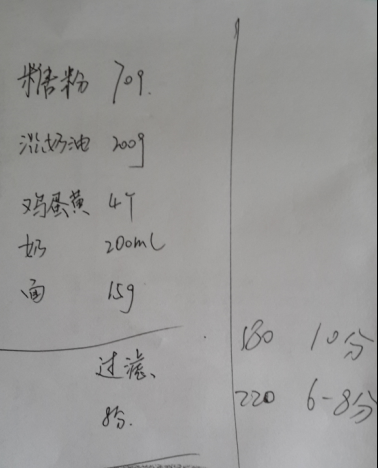 糖粉 70g.
淡奶油 200g
鸡蛋黄 4个
奶 200mL
面 15g
过滤、
8份.
180 10分
220 6-8分